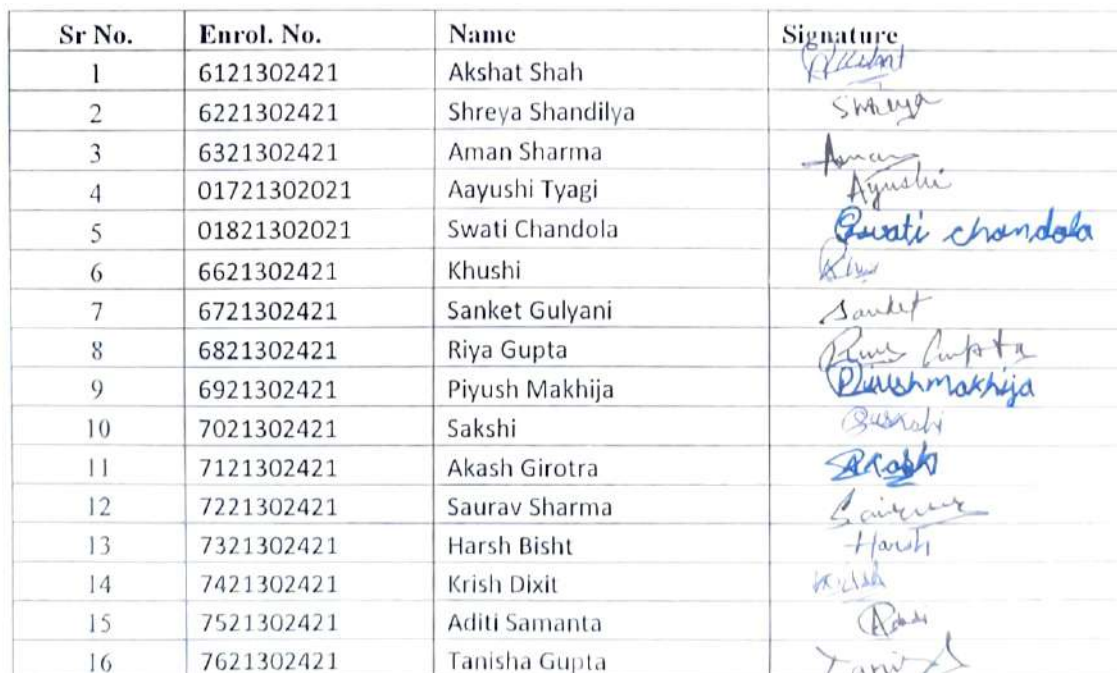 Sr No. Enrol. No. Name Signature
1 6121302421 Akshat Shah Akshat
2 6221302421 Shreya Shandilya Shreya
3 6321302421 Aman Sharma Aman
4 01721302021 Aayushi Tyagi Ayushi
5 01821302021 Swati Chandola Swati chandola
6 6621302421 Khushi
7 6721302421 Sanket Gulyani Sanket
8 6821302421 Riya Gupta Gupta
9 6921302421 Piyush Makhija Piyushmakhija
10 7021302421 Sakshi Sakshi
11 7121302421 Akash Girotra Akash
12 7221302421 Saurav Sharma
13 7321302421 Harsh Bisht Harsh
14 7421302421 Krish Dixit Krish
15 7521302421 Aditi Samanta
16 7621302421 Tanisha Gupta